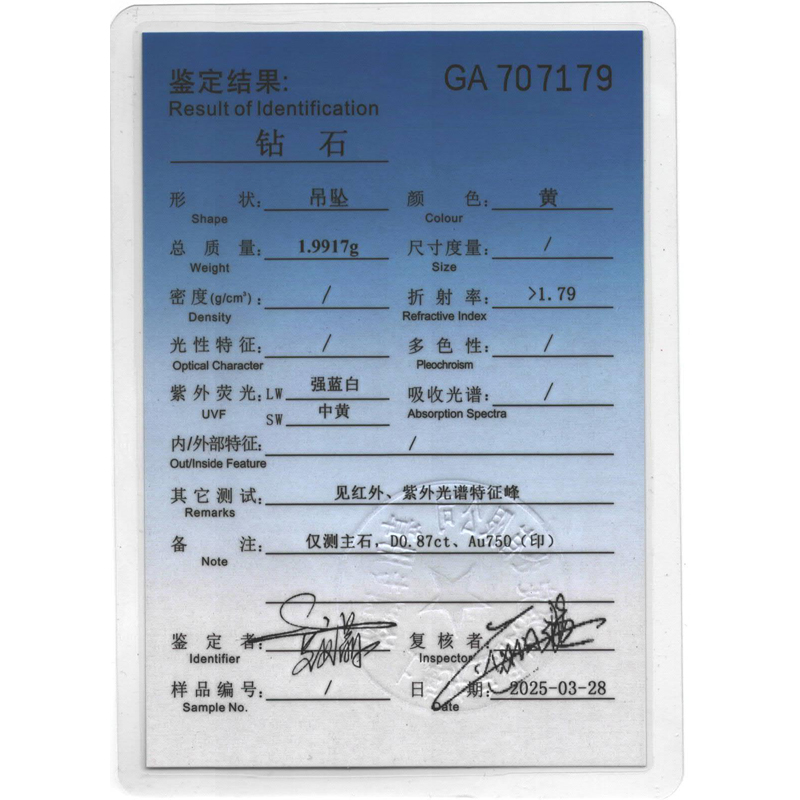 鉴定结果: GA 707179
Result of Identification
钻 石
形 状: 吊坠 颜 色: 黄
Shape Colour
总 质 量: 1.9917g 尺寸度量: /
Weight Size
密度(g/cm³): / 折 射 率: >1.79
Density Refractive Index
光性特征: / 多 色 性: /
Optical Character Pleochroism
紫外荧光: LW 强蓝白 吸收光谱: /
UVF SW 中黄 Absorption Spectra
内/外部特征: /
Out/Inside Feature
其它测试: 见红外、紫外光谱特征峰
Remarks
备 注: 仅测主石, D0.87ct、Au750(印)
Note
鉴 定 者: 复 核 者:
Identifier Inspector
样品编号: / 日 期: 2025-03-28
Sample No. Date